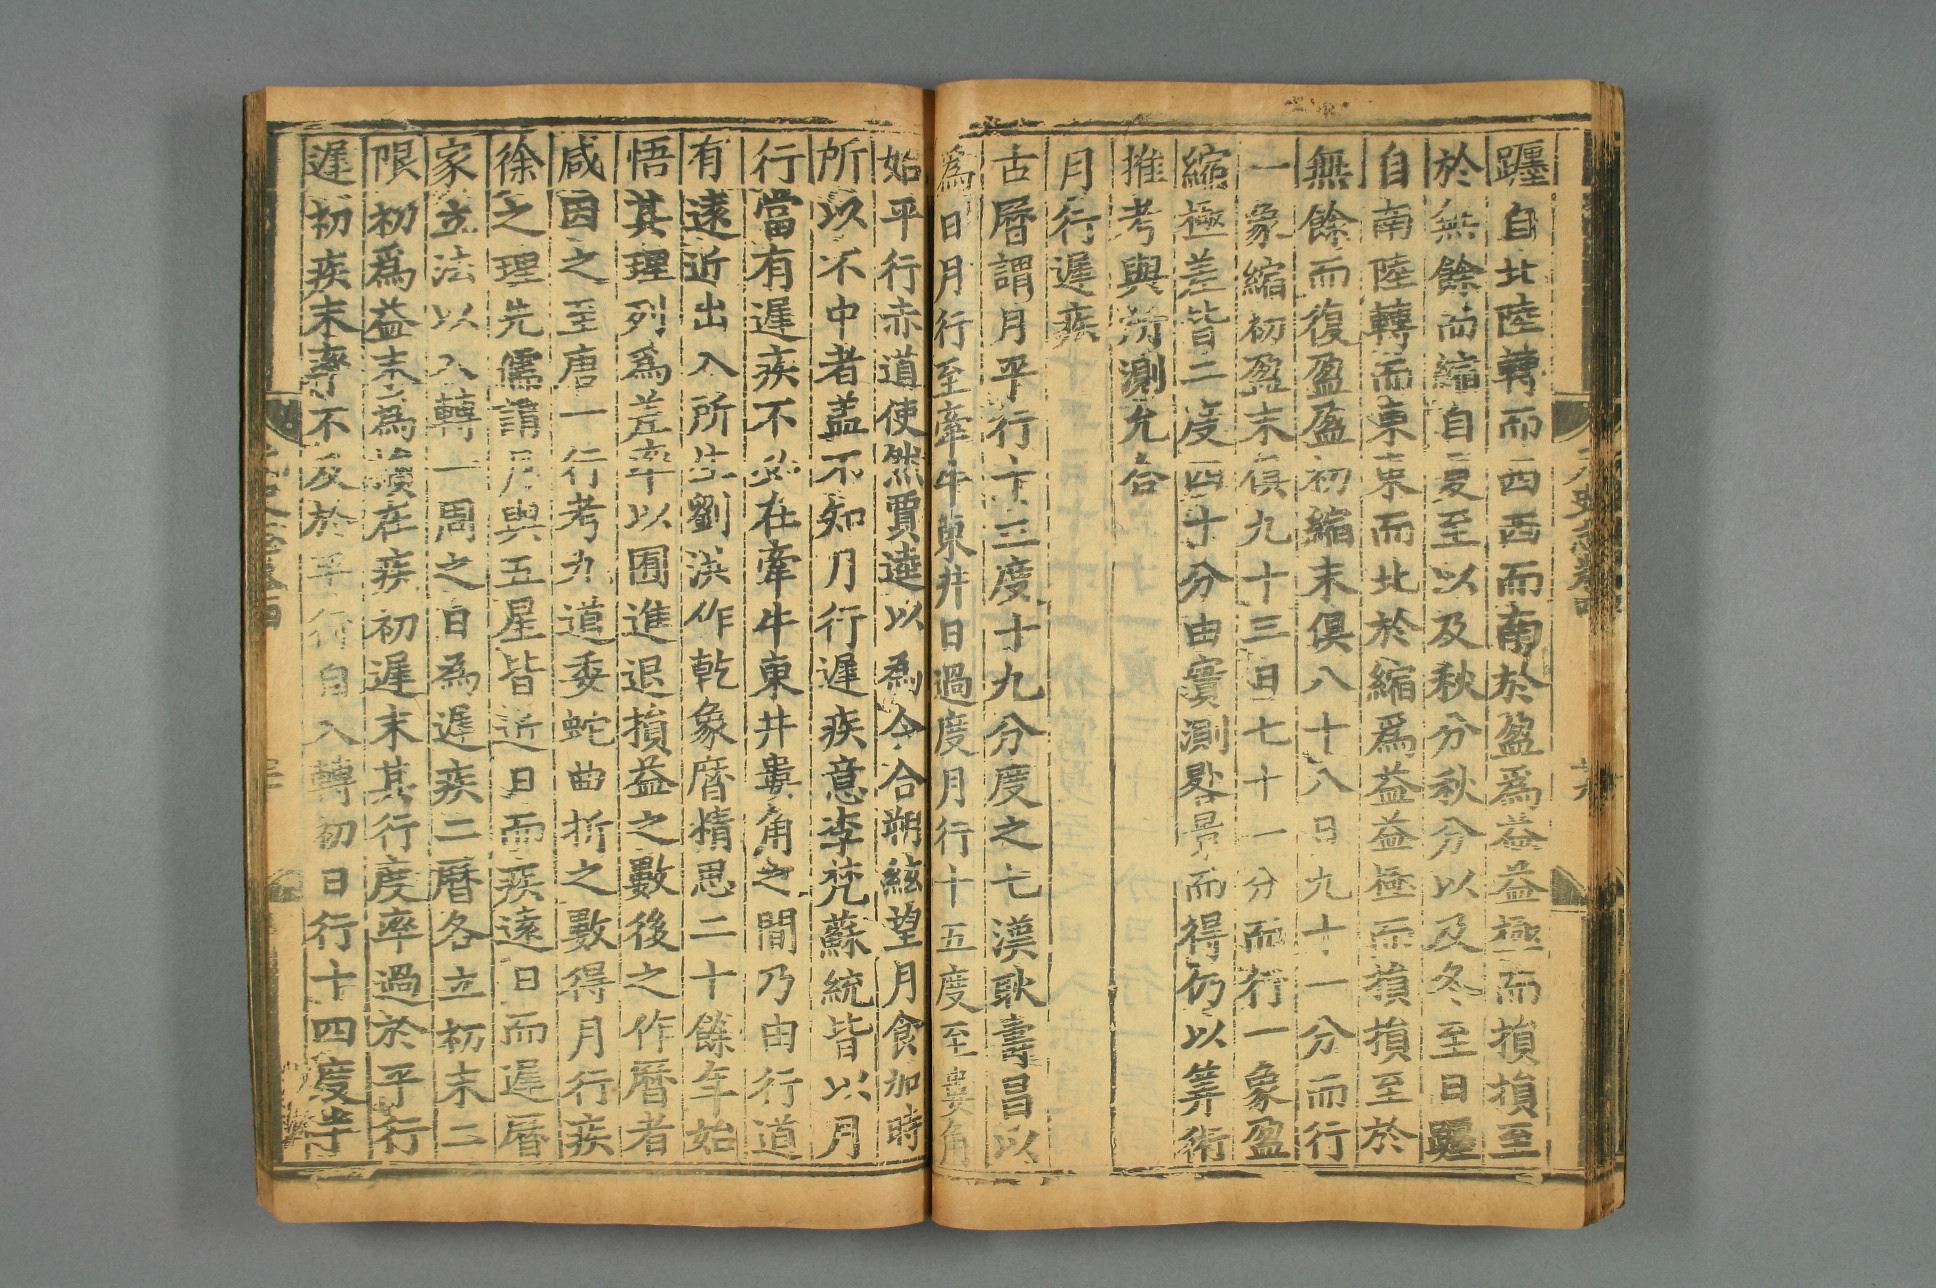 躔自北陸轉而西西而南於盈爲益益極而損損至
於無餘而縮自夏至以及秋分秋分以及冬至日躔
自南陸轉而東東而北於縮爲益益極而損損至於
無餘而復盈盈初縮末俱八十八日九十一分而行
一象縮初盈末俱九十三日七十一分而行一象盈
縮極差皆二度四十分由實測晷景而得仍以筭術
推考與所測允合
月行遲疾
古曆謂月平行十三度十九分度之七漢耿壽昌以
爲日月行至牽牛東井日過度月行十五度至婁角
始平行赤道使然賈逵以爲今合朔絃望月食加時
所以不中者盖不知月行遲疾意李梵蘇統皆以月
行當有遲疾不必在牽牛東井婁角之間乃由行道
有遠近出入所生劉洪作乾象曆精思二十餘年始
悟其理列爲差率以囿進退損益之數後之作曆者
咸因之至唐一行考九道委蛇曲折之數得月行疾
徐之理先儒謂月與五星皆近日而疾遠日而遲曆
家立法以入轉一周之日為遲疾二曆各立初末二
限初爲益末爲損在疾初遲末其行度率過於平行
遲初疾末率不及於平行自入轉初日行十四度半